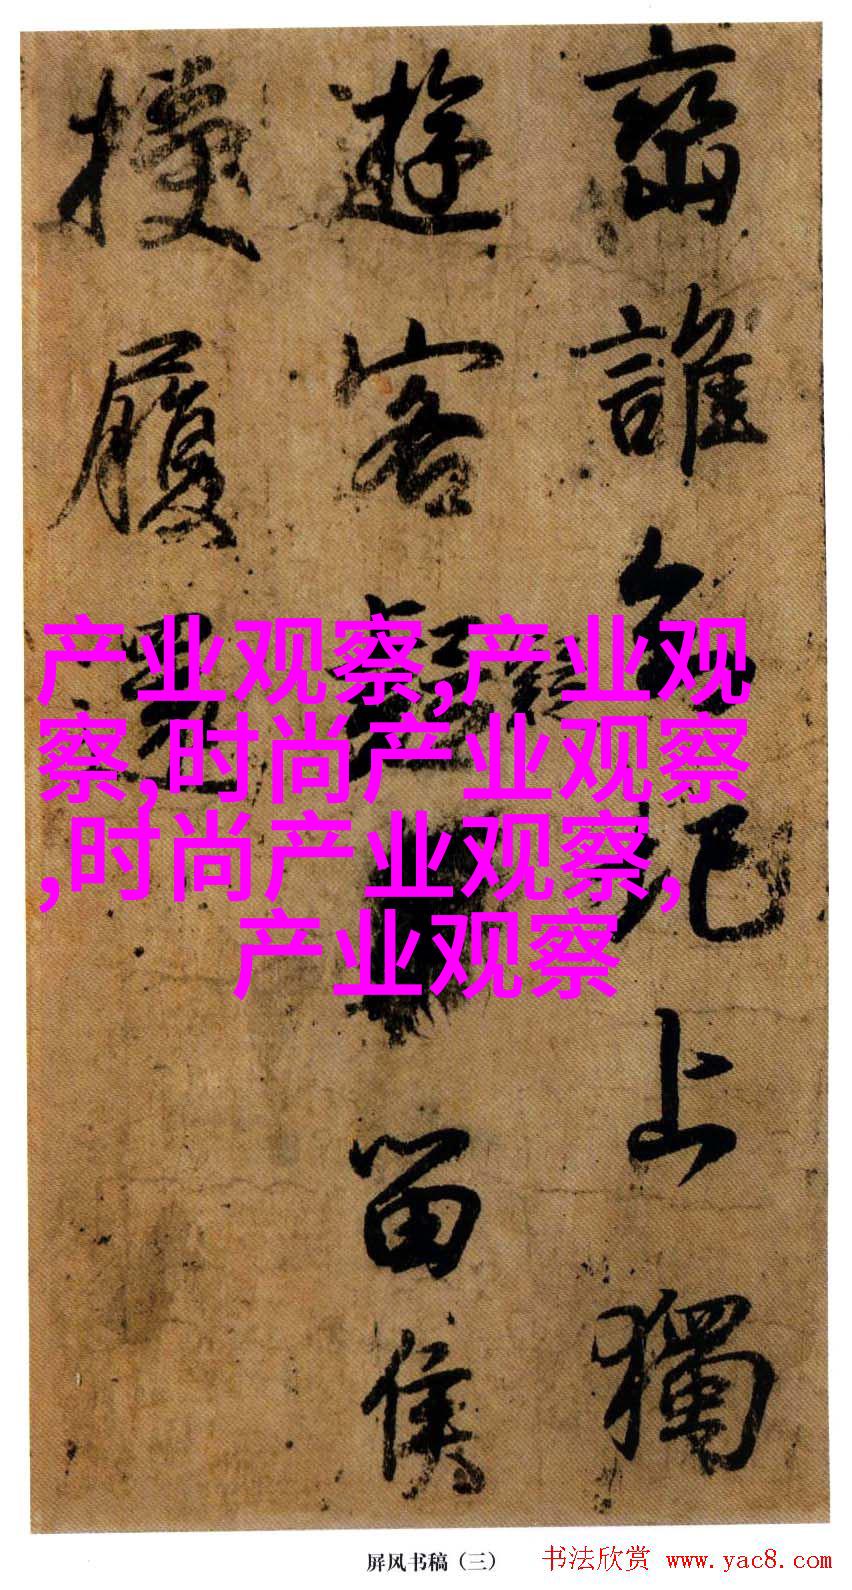 峦誰圯上獨
遊客留侯
履
产业观察,产业观
察,时尚产业观察
,时尚产业观察,
产业观察
屏风书稿（三）
书法欣赏 www.yac8.com